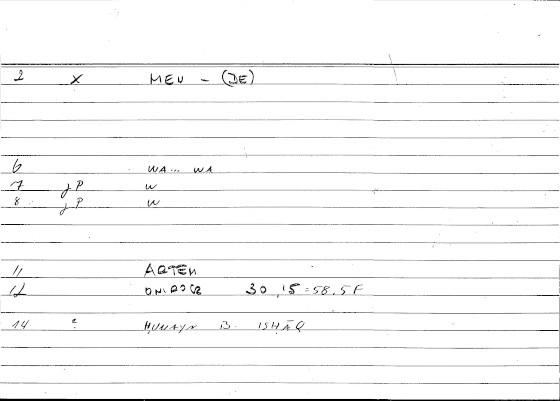 2 X MEN - (DE)
6 WA... WA
7 gP W
8 gP W
11 ARTEM
12 ONIROCR 30,15=58.5F
14 ? HUNAYN B. ISHĀQ